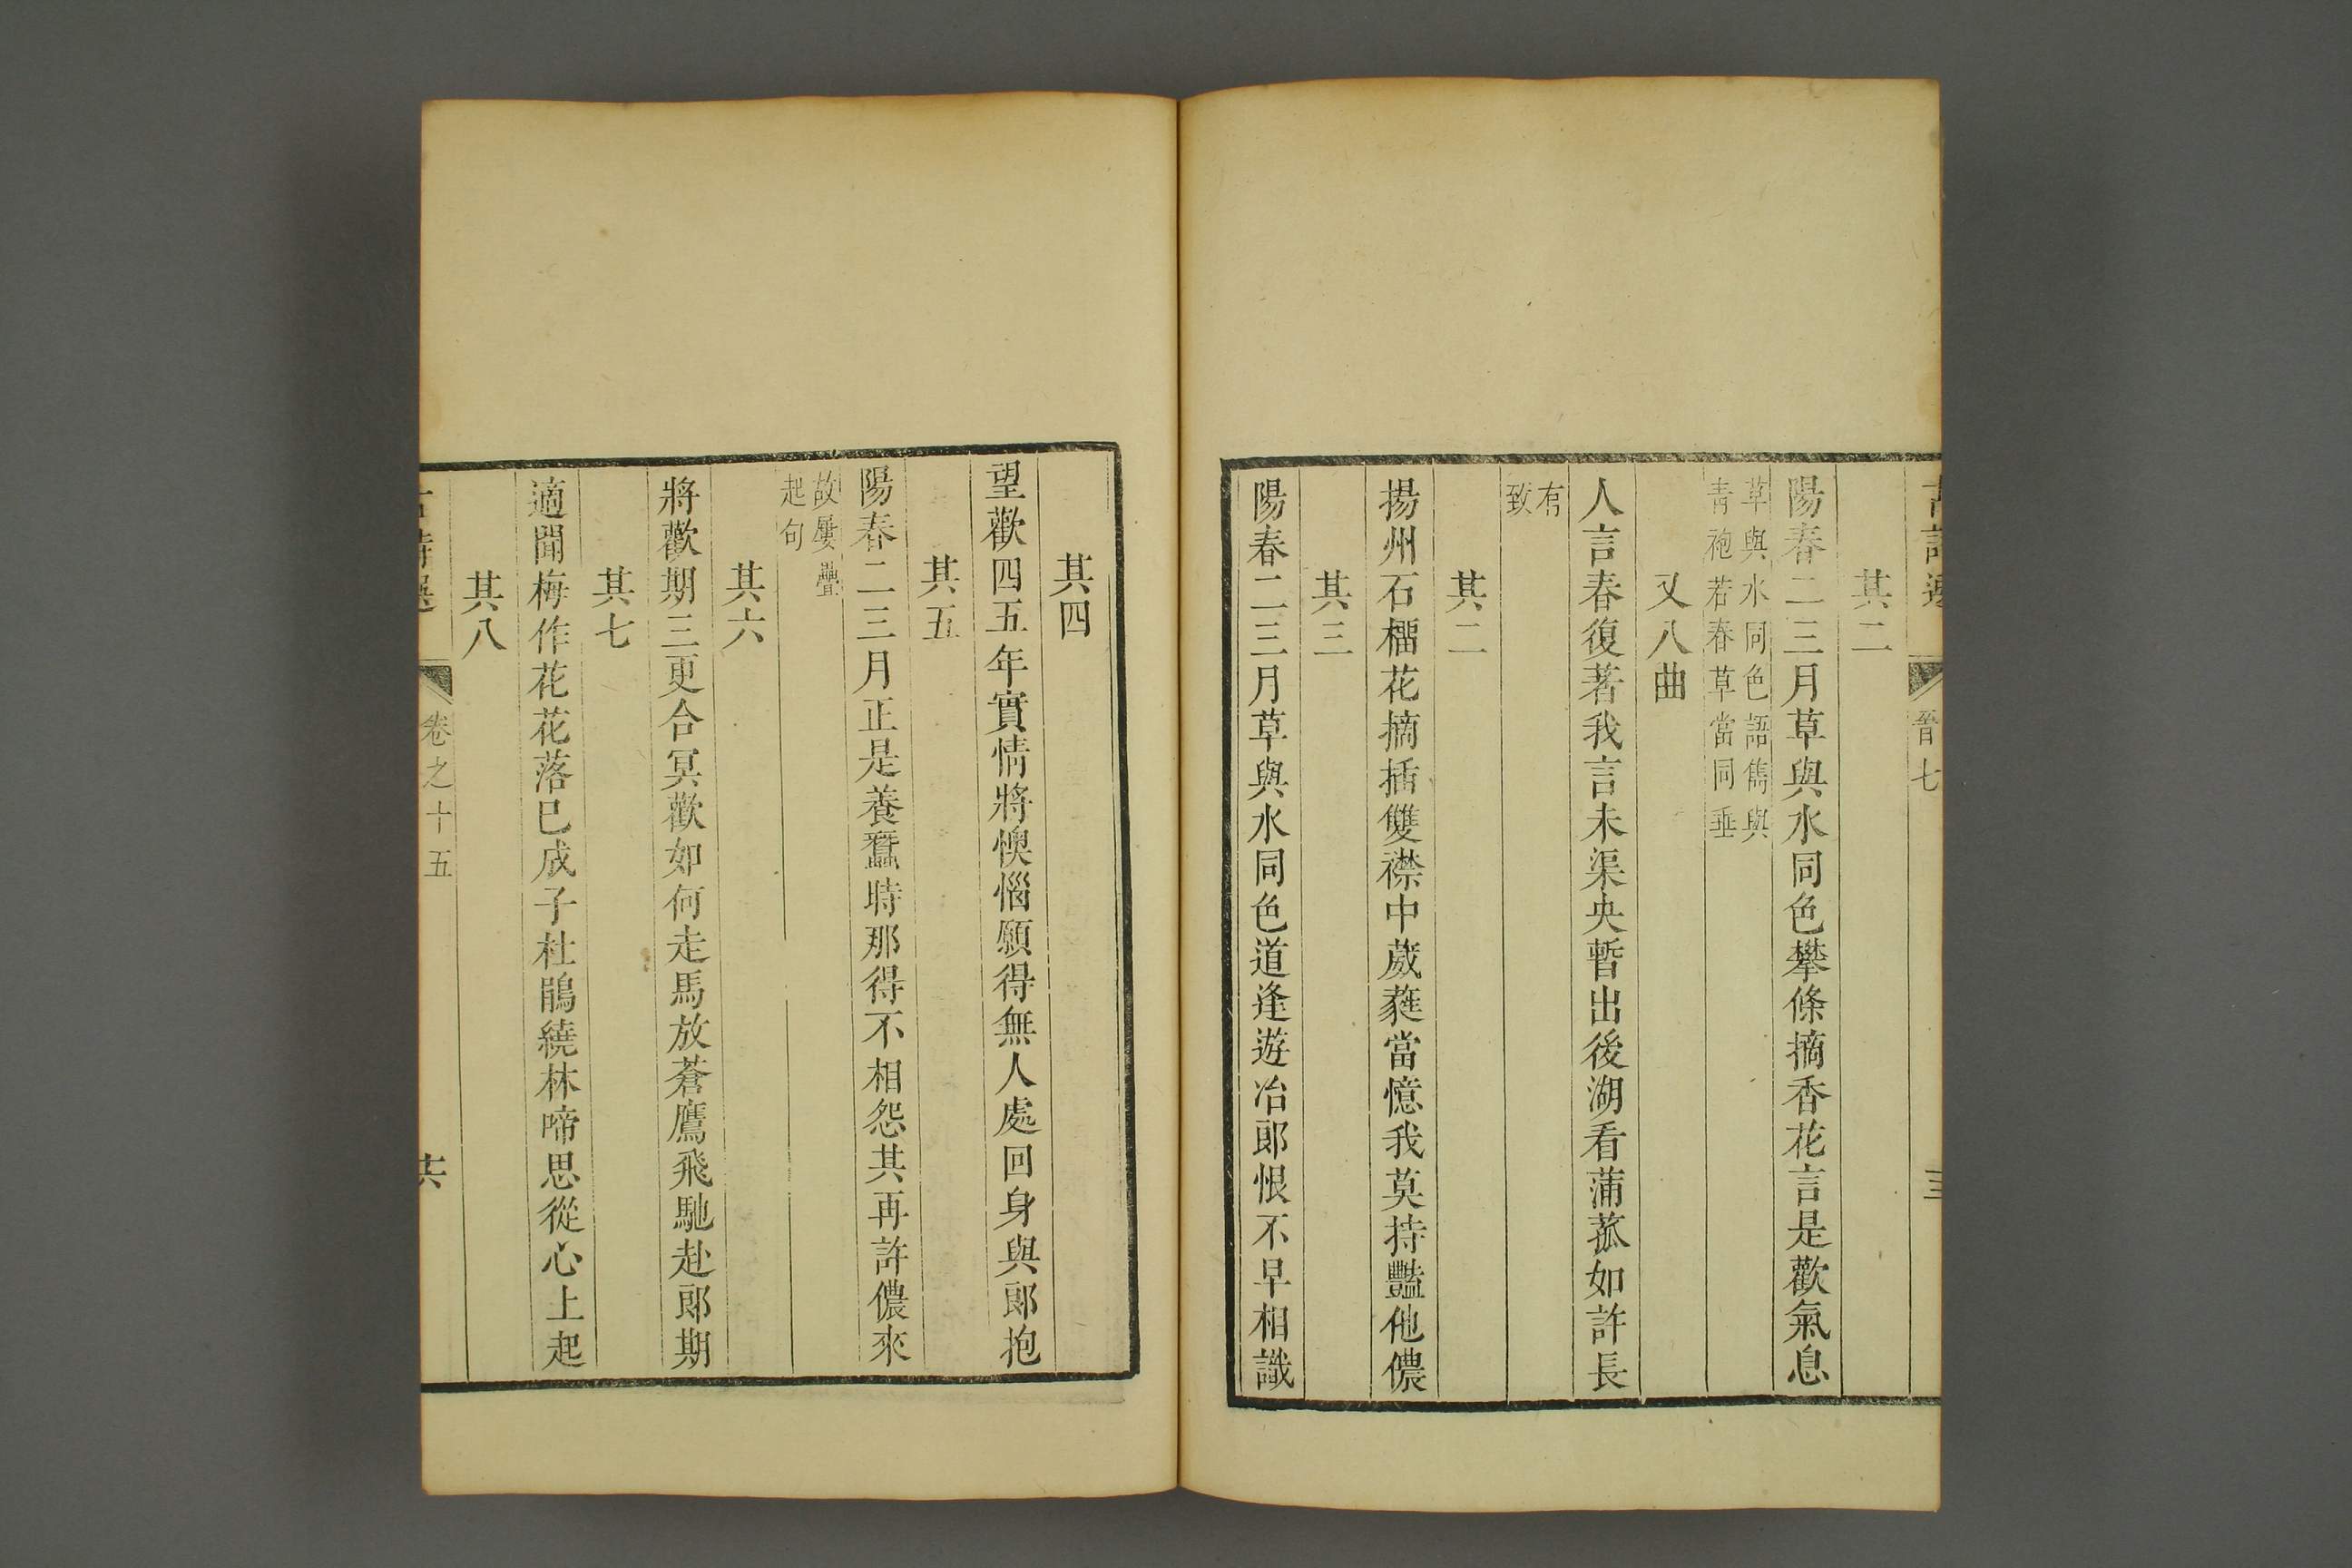 晉七
其二
陽春二三月草與水同色攀條摘香花言是歡氣息
草與水同色語雋與
青袍若春草當同垂
又八曲
人言春復著我言未渠央暫出後湖看蒲菰如許長
有
致
其二
揚州石橊花摘插雙襟中葳蕤當憶我莫持豔他儂
其三
陽春二三月草與水同色道逢遊冶郎恨不早相識
其四
望歡四五年實情將懊惱願得無人處回身與郎抱
其五
陽春二三月正是養蠶時那得不相怨其再許儂來
故屢疊
起句
其六
將歡期三更合冥歡如何走馬放蒼鷹飛馳赴郎期
其七
適聞梅作花花落已成子杜鵑繞林啼思從心上起
其八
卷之十五